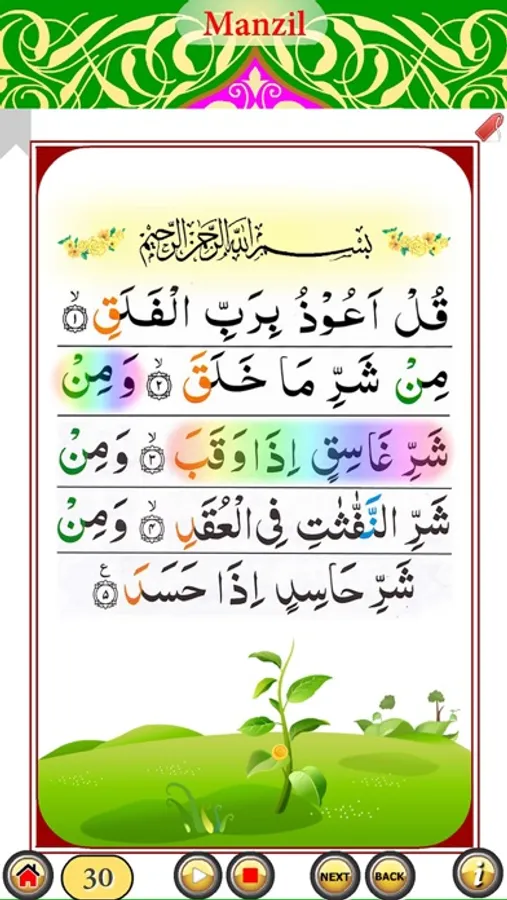 Manzil
بسم الله الرحمن الرحيم
قُلْ اَعُوْذُ بِرَبِّ الْفَلَقِۙ ۱
مِنْ شَرِّ مَا خَلَقَۙ ۲ وَمِنْ
شَرِّ غَاسِقٍ اِذَا وَقَبَۙ ۳ وَمِنْ
شَرِّ النَّفّٰثٰتِ فِی الْعُقَدِۙ ۴ وَمِنْ
شَرِّ حَاسِدٍ اِذَا حَسَدَ ع ۵
30
NEXT
BACK
i